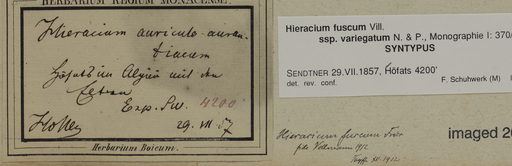 HERBARIUM REGIUM MONACENSE.
Hieracium auriculo-auran-
tiacum
Höfats im Algäu mit den
Eltern
Exp. S.W. 4200'
29. VII 57
Holler
Herbarium Boicum.
Hieracium fuscum Vill.
ssp. variegatum N. & P., Monographie I: 370/
SYNTYPUS
SENDTNER 29.VII.1857, Höfats 4200'
det. rev. conf. F. Schuhwerk (M)
Hieracium fuscum
fide 1912
imaged 20